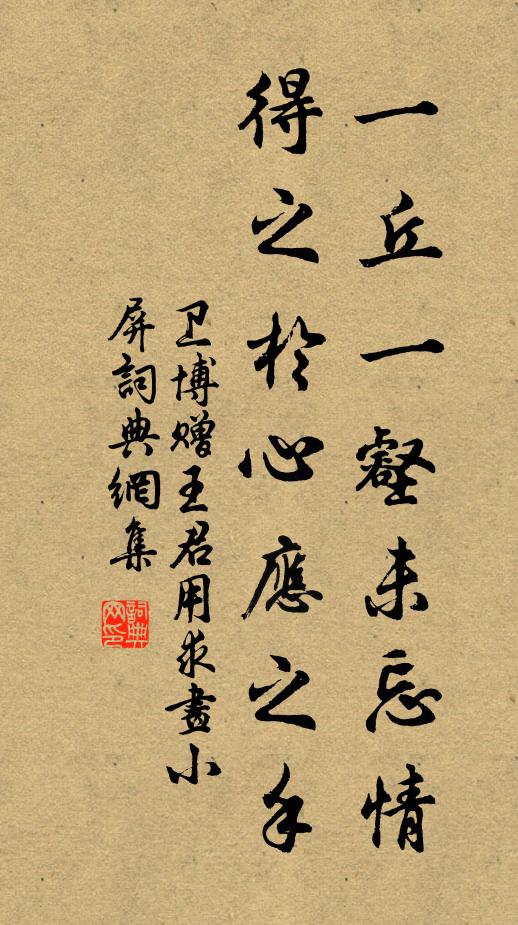 一丘一壑未忘情
得之於心應之手
卫博赠王君用求畫小
屏詞典網集
詞典网印